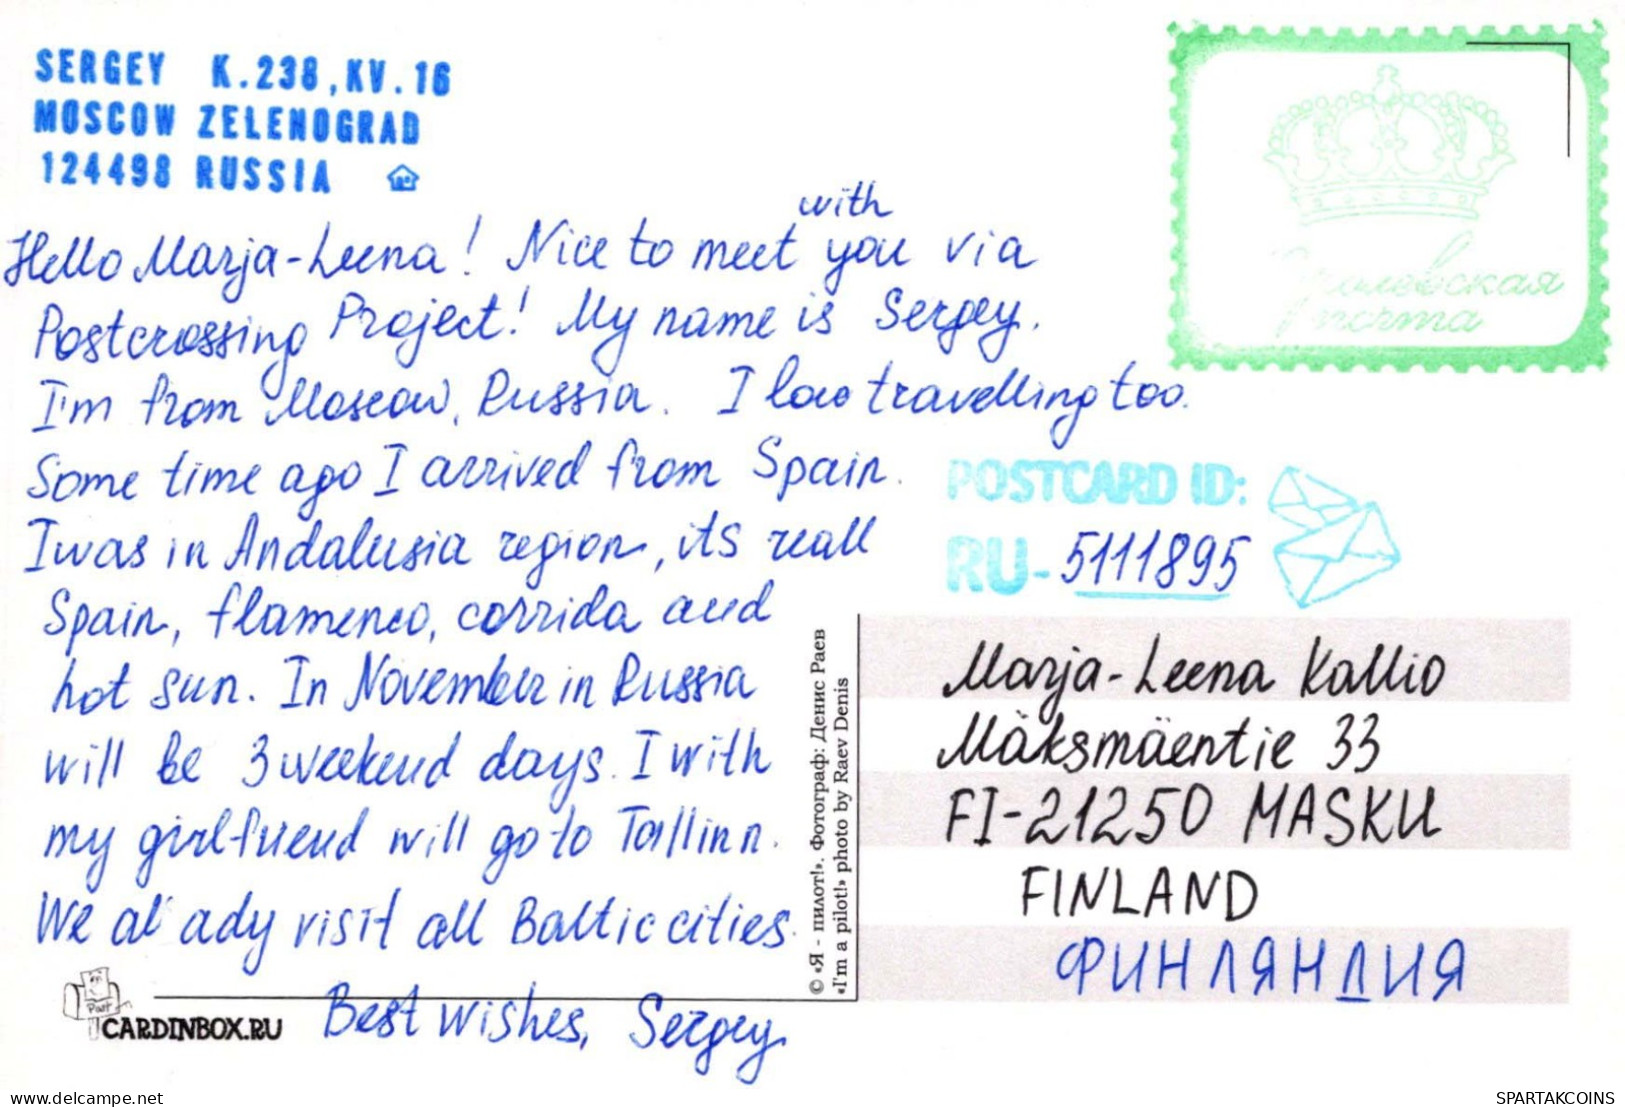 SERGEY K.238, KV.16
MOSCOW ZELENOGRAD
124498 RUSSIA
with
Hello Marja-Leena! Nice to meet you via
Postcrossing Project! My name is Sergey.
I'm from Moscow, Russia. I love travelling too.
Some time ago I arrived from Spain.
I was in Andalusia region, its reall
Spain, flamenco, corrida and
hot sun. In November in Russia
will be 3 weekend days. I with
my girlfriend will go to Tallinn.
We al ady visit all Baltic cities.
Best wishes, Sergey
почта
POSTCARD ID:
RU-5111895
Marja-Leena Kallio
Mäksmäentie 33
FI-21250 MASKU
FINLAND
ФИНЛЯНДИЯ
© «Я - пилот!». Фотограф: Денис Раев
«I'm a pilot!» photo by Raev Denis
Post
CARDINBOX.RU
www.delcampe.net
SPARTAKCOINS